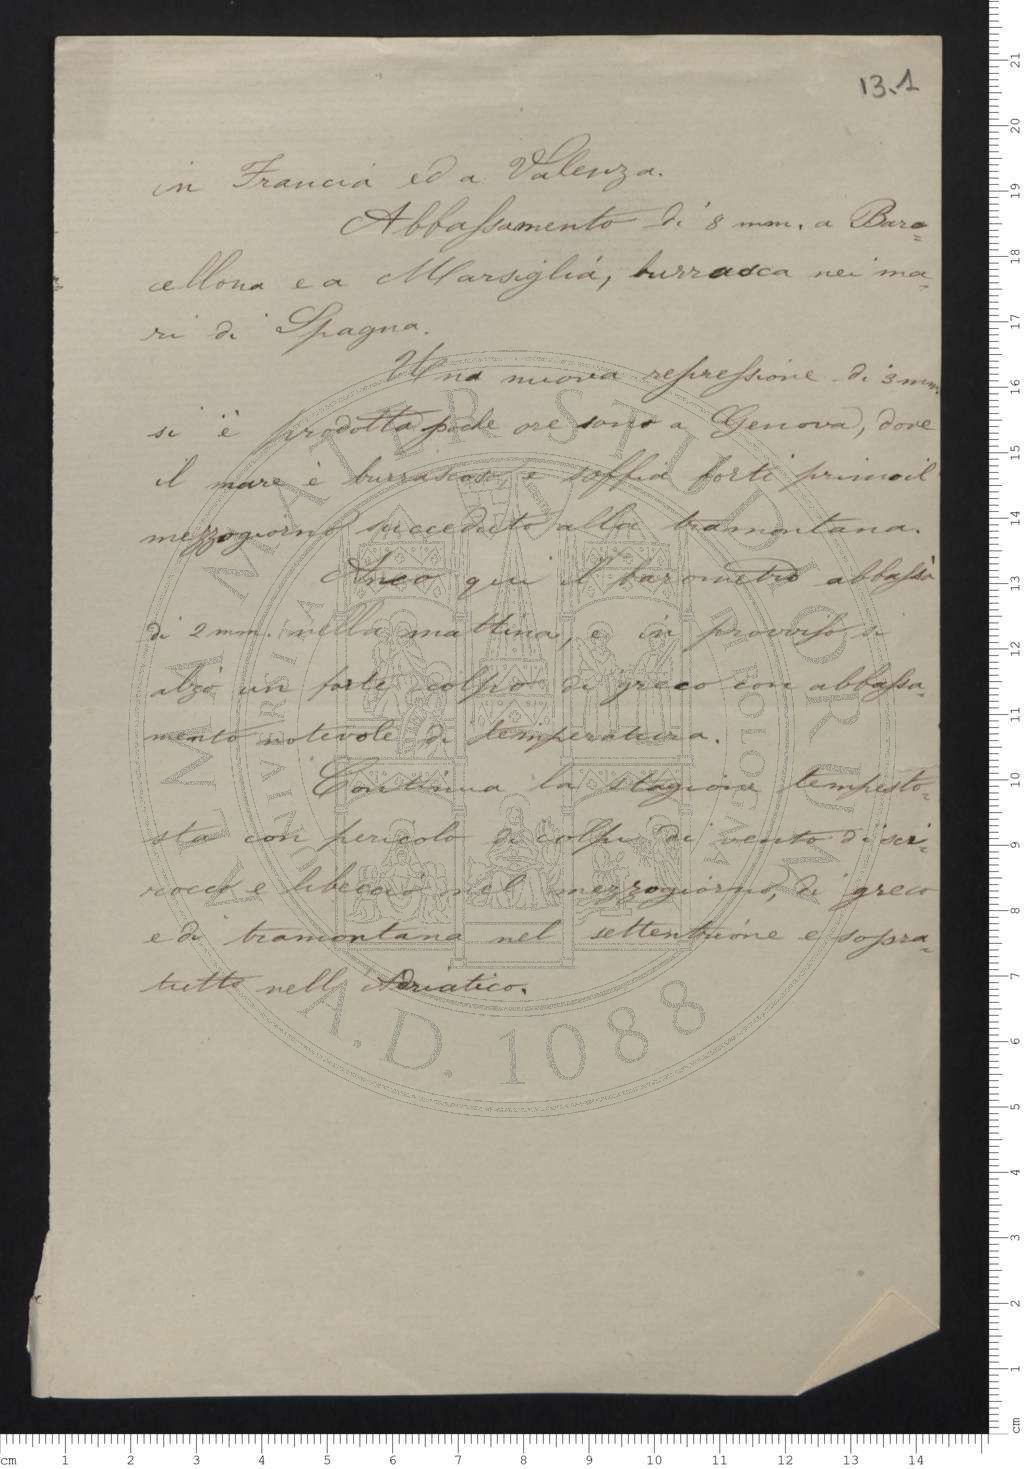 13.1
in Francia ed a Valenza.
Abbassamento di 8 mm. a Barc=
ellona e a Marsiglia, burrasca nei ma=
ri di Spagna.
Una nuova repressione di 3 mm.
si è prodotta poche ore sono a Genova, dove
il mare è burrascoso, e soffia forte prima il
mezzogiorno succeduto alla tramontana.
Anco qui il barometro abbassò
di 2 mm. nella mattina, e in provviso si
alzò un forte colpo di greco con abbassa=
mento notevole di temperatura.
Continua la stagione tempesto=
sta con pericolo di colpi di vento di sci=
rocco e libeccio nel mezzogiorno, di greco
e di tramontana nel settentrione e sopra=
tutto nell'Adriatico.
ALMA MATER STUDIORUM
UNIVERSITÀ DI BOLOGNA
A.D. 1088
cm 1 2 3 4 5 6 7 8 9 10 11 12 13 14
21
20
19
18
17
16
15
14
13
12
11
10
9
8
7
6
5
4
3
2
1
cm